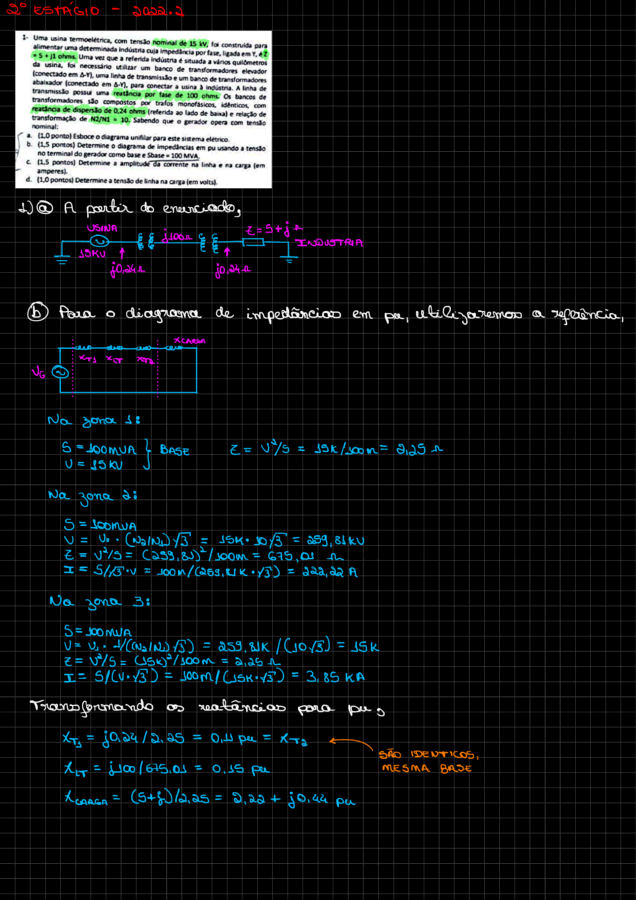 2º ESTÁGIO - 2022.2
1- Uma usina termoelétrica, com tensão nominal de 15 kV, foi construída para
alimentar uma determinada indústria cuja impedância por fase, ligada em Y, é Z
= 5 + j1 ohms. Uma vez que a referida indústria é situada a vários quilômetros
da usina, foi necessário utilizar um banco de transformadores elevador
(conectado em Δ-Y), uma linha de transmissão e um banco de transformadores
abaixador (conectado em Δ-Y), para conectar a usina à indústria. A linha de
transmissão possui uma reatância por fase de 100 ohms. Os bancos de
transformadores são compostos por trafos monofásicos, idênticos, com
reatância de dispersão de 0,24 ohms (referida ao lado de baixa) e relação de
transformação de N2/N1 = 10. Sabendo que o gerador opera com tensão
nominal:
a. (1,0 ponto) Esboce o diagrama unifilar para este sistema elétrico.
b. (1,5 pontos) Determine o diagrama de impedâncias em pu usando a tensão
no terminal do gerador como base e Sbase = 100 MVA.
c. (1,5 pontos) Determine a amplitude da corrente na linha e na carga (em
amperes).
d. (1,0 pontos) Determine a tensão de linha na carga (em volts).
1) a) A partir do enunciado,
USINA
j100Ω
Z = 5 + j Ω
INDUSTRIA
15KV
j0,24Ω
j0,24Ω
b) Para o diagrama de impedâncias em pu, utilizaremos a referência,
XCARGA
XT1 XLT XT2
VG
Na zona 1:
S = 100MVA } BASE Z = V²/S = 15K/100M = 2,25 Ω
V = 15KV
Na zona 2:
S = 100MVA
V = V1 · (N2/N1)√3 = 15K · 10√3 = 259,81KV
Z = V²/S = (259,81)²/100M = 675,01 Ω
I = S/√3·V = 100M/(259,81K·√3) = 222,22 A
Na zona 3:
S = 100MVA
V = V1 · 1/((N2/N1)√3) = 259,81K/(10√3) = 15K
Z = V²/S = (15K)²/100M = 2,25 Ω
I = S/(V·√3) = 100M/(15K·√3) = 3,85 KA
Transformando as reatâncias para pu,
XT1 = j0,24/2,25 = 0,11 pu = XT2
SÃO IDENTICOS,
MESMA BASE
XLT = j100/675,01 = 0,15 pu
XCARGA = (5+j)/2,25 = 2,22 + j0,44 pu